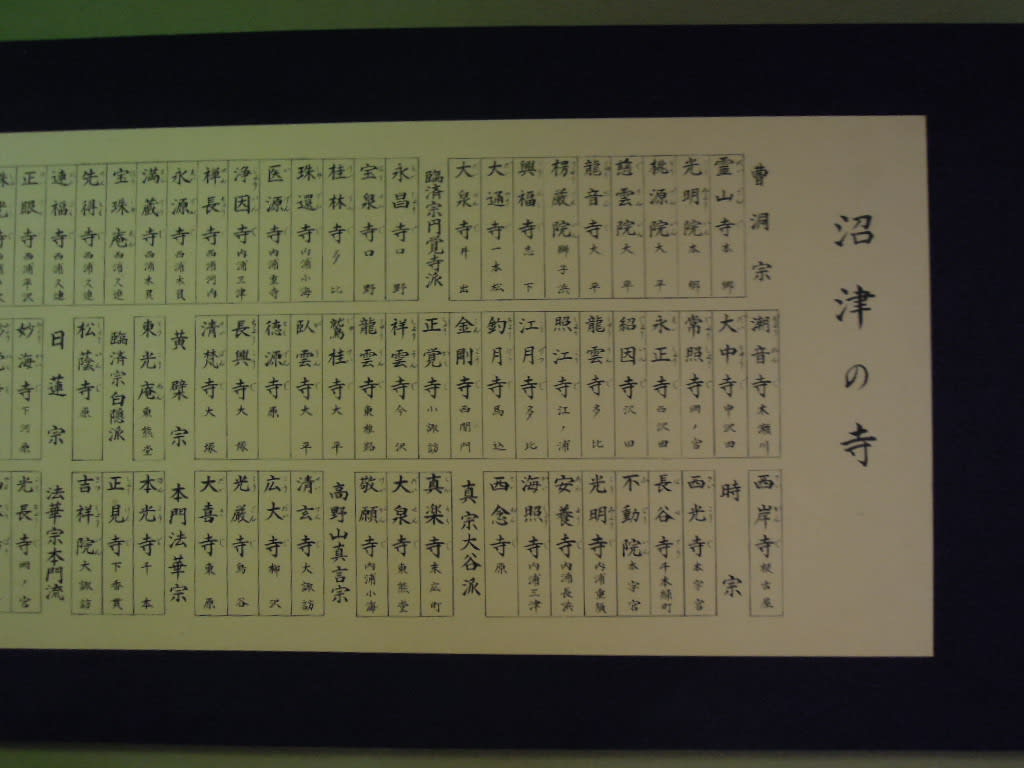 沼津の寺
曹洞宗
霊山寺 本郷
光明院 本郷
桃源院 大平
慈雲院 大平
龍音寺 大平
楞厳院 獅子浜
興福寺 志下
大通寺 一本松
大泉寺 井出
臨済宗円覚寺派
永昌寺 口野
宝泉寺 口野
桂林寺 多比
珠還寺 内浦小海
医源寺 内浦重寺
浄因寺 内浦三津
祥長寺 西浦河内
永源寺 西浦木負
満蔵寺 西浦木負
宝珠庵 西浦久連
先得寺 西浦久連
蓮福寺 西浦久連
正眼寺 西浦平沢
潮音寺 木瀬川
大中寺 中沢田
常照寺 岡ノ宮
永正寺 西沢田
紹因寺 沢田
龍雲寺 多比
照江寺 江ノ浦
江月寺 多比
釣月寺 馬込
金剛寺 西間門
正覚寺 小諏訪
祥雲寺 今沢
龍雲寺 東椎路
鷲桂寺 大平
臥雲寺 大平
徳源寺 原
長興寺 大塚
清梵寺 大塚
黄檗宗
東光庵 東熊堂
臨済宗白隠派
松蔭寺 原
日蓮宗
妙海寺 下河原
西岸寺 根古屋
時宗
西光寺 本字宮
長谷寺 千本緑町
不動院 本字宮
光明寺 内浦重須
安養寺 内浦長浜
海照寺 内浦三津
西念寺 原
真宗大谷派
真楽寺 末広町
大泉寺 東熊堂
敬願寺 内浦小海
高野山真言宗
清玄寺 大諏訪
広大寺 柳沢
光厳寺 鳥谷
大喜寺 東原
本門法華宗
本光寺 千本
正見寺 下香貫
吉祥院 大諏訪
法華宗本門流
光長寺 岡ノ宮